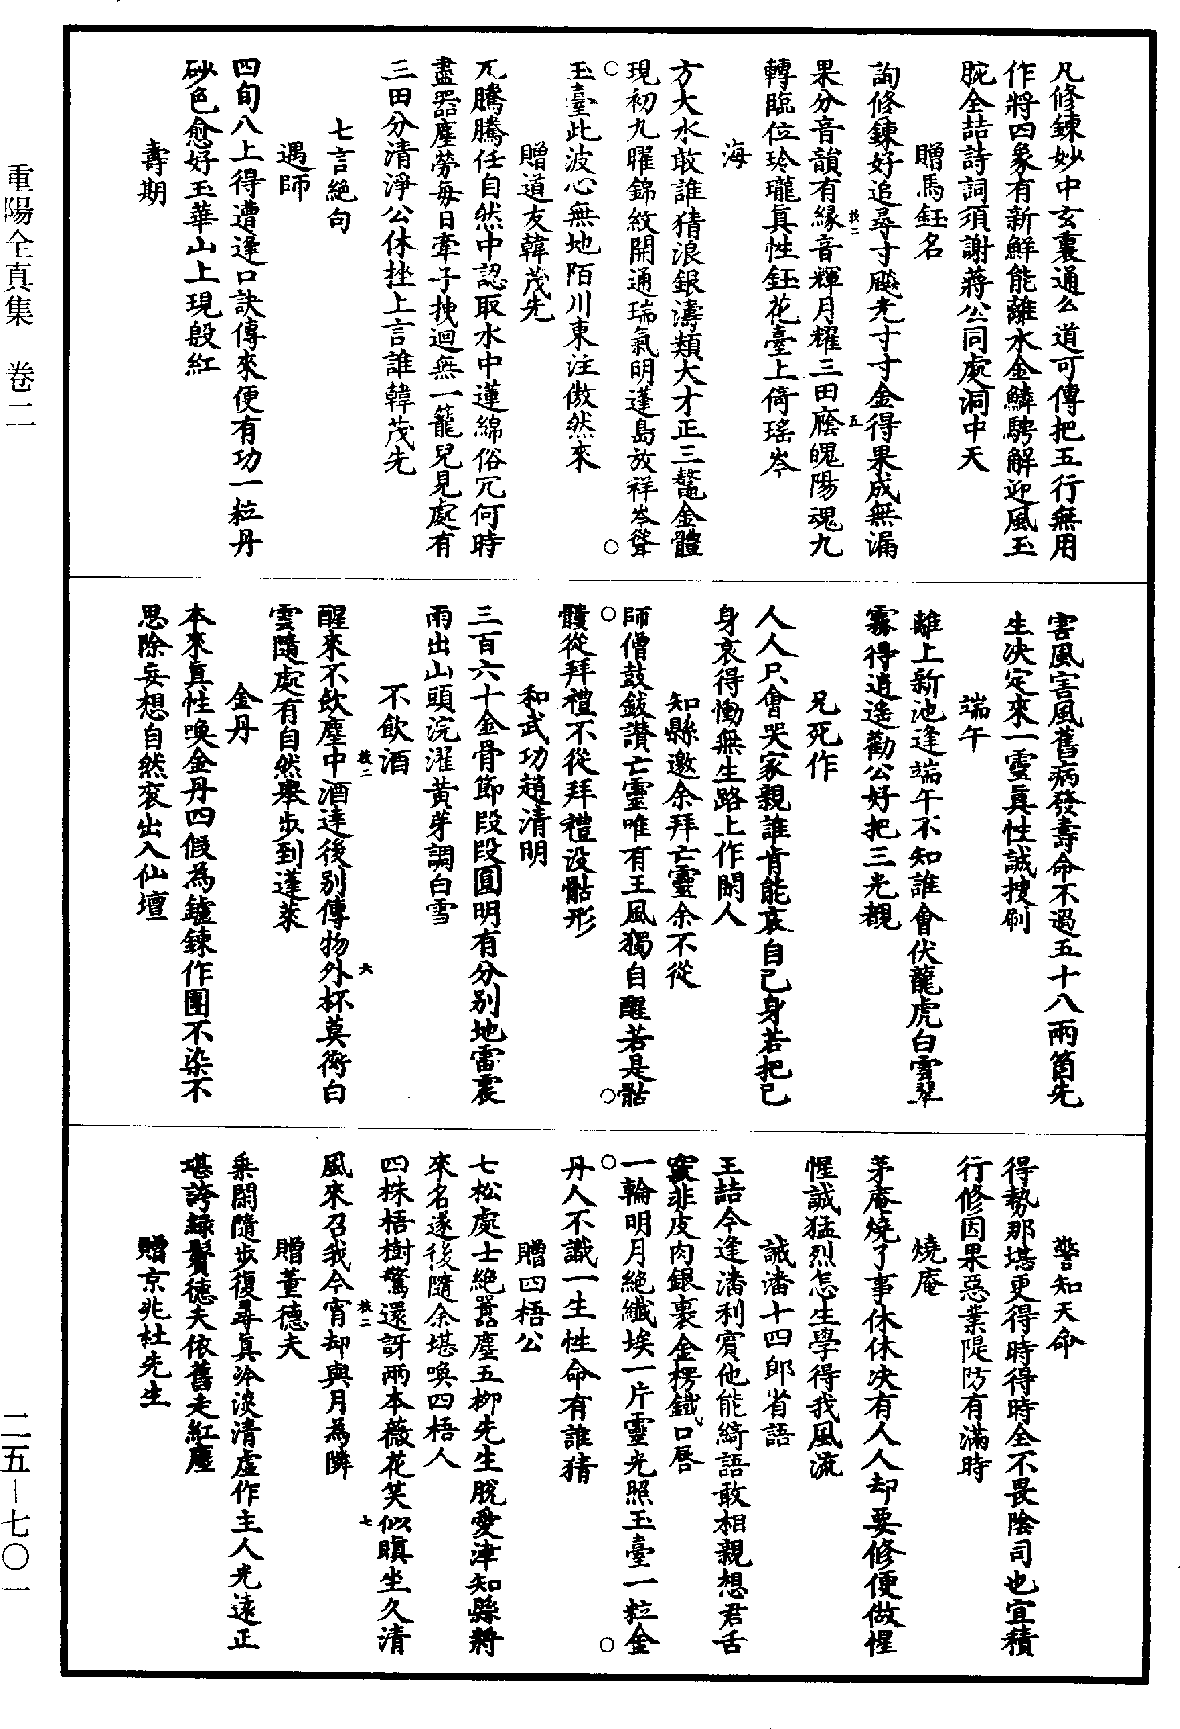 凡修鍊妙中玄裏通么道可傳把五行無用
作將四象有新鮮能離水金鱗騁解迎風玉
腕全詰詩詞須謝蔣公同處洞中天
贈馬鈺名
詢修鍊好追尋寸颷光寸寸金得果成無漏
果分音韻有緣音輝月耀三田廕魄陽魂九
轉臨位玲瓏真性鈺花臺上倚瑤岑
海
方大水敢誰猜浪銀濤類大才正三鼇金體
現初九曜錦紋開通瑞氣明蓬島放祥岑聳
玉臺此波心無地陌川東注傲然來
贈道友韓茂先
兀騰騰任自然中認取水中蓮綿俗冗何時
盡嚣塵勞每日牽子拽迴無一籠兒見處有
三田分清淨公休挫上言誰韓茂先
七言絶句
遇師
四旬八上得遭逢口訣傳來便有功一粒丹
砂色愈好玉華山上現殷紅
壽期
害風害風舊病發壽命不過五十八兩箇先
生決定來一靈真性誠搜刷
端午
離上新池逢端午不知誰會伏龍虎白雲翠
霧得逍遙勸公好把三光覩
兄死作
人人只會哭家親誰肯能哀自己身若把己
身哀得慟無生路上作閑人
知縣邀余拜亡靈余不從
師僧鼓鈸讚亡靈唯有王風獨自醒若是骷
髏從拜禮不從拜禮没骷形
和武功趙清明
三百六十金骨節段段圓明有分別地雷震
雨出山頭浣濯黃芽調白雪
不飲酒
醒來不飲塵中酒達後別傳物外杯莫衒白
雲隨處有自然舉步到蓬萊
金丹
本來真性喚金丹四假為鑪鍊作團不染不
思除妄想自然衮出入仙壇
警知天命
得勢那堪更得時得時全不畏陰司也宜積
行修因果惡業隄防有滿時
燒庵
茅庵燒了事休休决有人人却要修便做惺
惺誠猛烈怎生學得我風流
誡潘十四郎省語
王喆今逢潘利賓他能綺語敢相親想君舌
竅非皮肉銀裹金楞鐵口唇
一輪明月絶纖埃一片靈光照玉臺一粒金
丹人不識一生性命有誰猜
贈四梧公
七松處士絶嚣塵五柳先生脫愛津知縣將
來名遂後隨余堪喚四梧人
四株梧樹驚還訝兩本薇花笑似瞋坐久清
風來召我今宵却與月為隣
贈董德夫
乘閑隨步復尋真冷淡清虛作主人光遠正
堪誇緑鬢德夫依舊走紅塵
贈京兆杜先生
重陽全真集　卷二
二五—七〇一